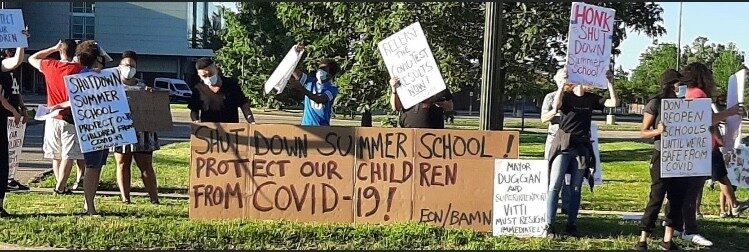 PROTECT
OUR
CHILDREN
SHUTDOWN
SUMMER
SCHOOL
PROTECT OUR
CHILDREN FROM
COVID
SHUT DOWN SUMMER SCHOOL!
PROTECT OUR CHILDREN
FROM COVID-19!
EON/BAMN
TEST
RESULTS
NOW!
HONK
SHUT
DOWN
SUMMER
SCHOOL!
MAYOR
DUGGAN
AND
SUPERINTENDENT
VITTI
MUST RESIGN
IMMEDIATELY
DON'T
REOPEN
SCHOOLS
UNTIL WE'RE
SAFE FROM
COVID